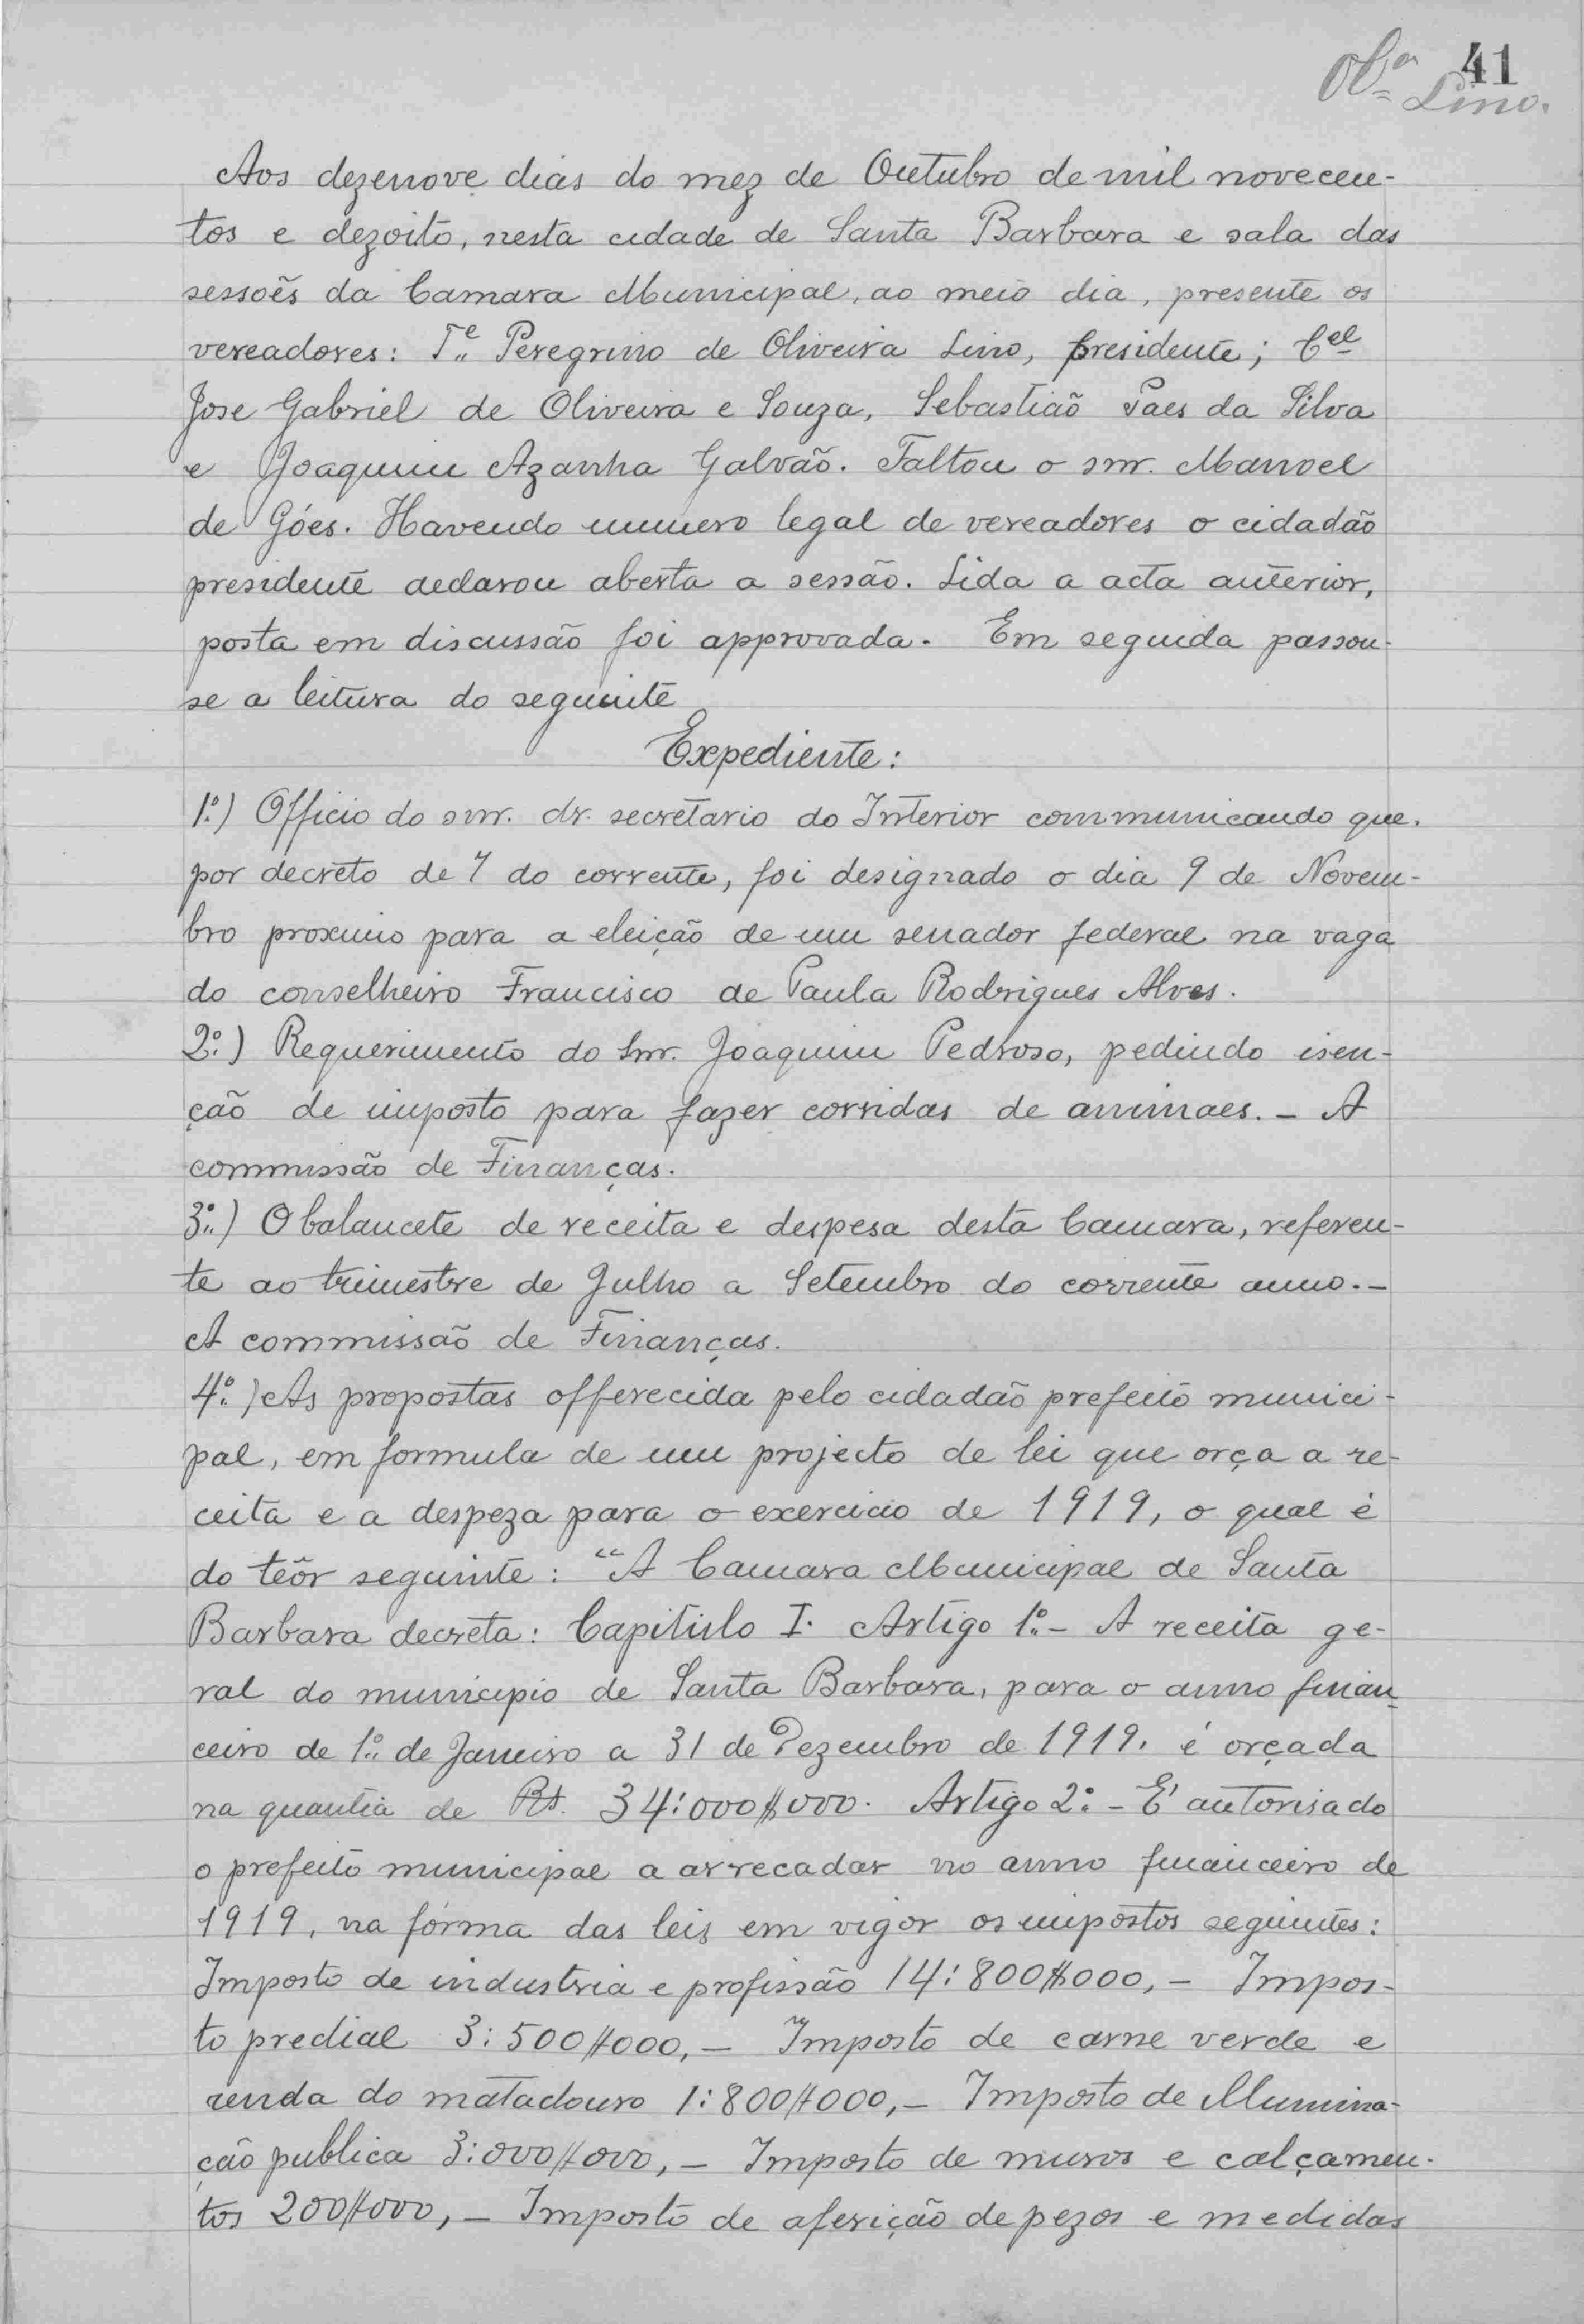 41
Olª Lino.
Aos dezenove dias do mez de Outubro de mil novecen-
tos e dezoito, nesta cidade de Santa Barbara e sala das
sessoẽs da Camara Municipal, ao meio dia, presente os
vereadores: Tᵉ Peregrino de Oliveira Lino, presidente; Cᵉˡ
Jose Gabriel de Oliveira e Souza, Sebastião Paes da Silva
e Joaquim Azanha Galvão. Faltou o snr. Manoel
de Góes. Havendo numero legal de vereadores o cidadão
presidente declarou aberta a sessão. Lida a acta anterior,
posta em discussão foi approvada. Em seguida passou-
se a leitura do seguinte
Expediente:
1º.) Officio do snr. dr. secretario do Interior communicando que,
por decreto de 7 do corrente, foi designado o dia 9 de Novem-
bro proximo para a eleição de um senador federal na vaga
do conselheiro Francisco de Paula Rodrigues Alves.
2º.) Requerimento do Snr. Joaquim Pedroso, pedindo isen-
ção de imposto para fazer corridas de animaes. - A
commissão de Finanças.
3º.) O balancete de receita e despesa desta Camara, referen-
te ao trimestre de Julho a Setembro do corrente anno. -
A commissão de Finanças.
4º.) As propostas offerecida pelo cidadão prefeito munici-
pal, em formula de um projecto de lei que orça a re-
ceita e a despeza para o exercicio de 1919, o qual é
do teôr seguinte: "A Camara Municipal de Santa
Barbara decreta: Capitulo I. Artigo 1º. - A receita ge-
ral do municipio de Santa Barbara, para o anno finan-
ceiro de 1º. de Janeiro a 31 de Dezembro de 1919, é orçada
na quantia de Rs. 34:000$000. Artigo 2º. - E' autorisado
o prefeito municipal a arrecadar no anno financeiro de
1919, na fórma das leis em vigor os impostos seguintes:
Imposto de industria e profissão 14:800$000, - Impos-
to predial 3:500$000, - Imposto de carne verde e
renda do matadouro 1:800$000, - Imposto de illumina-
ção publica 3:000$000, - Imposto de muros e calçamen-
tos 200$000, - Imposto de aferição de pezos e medidas